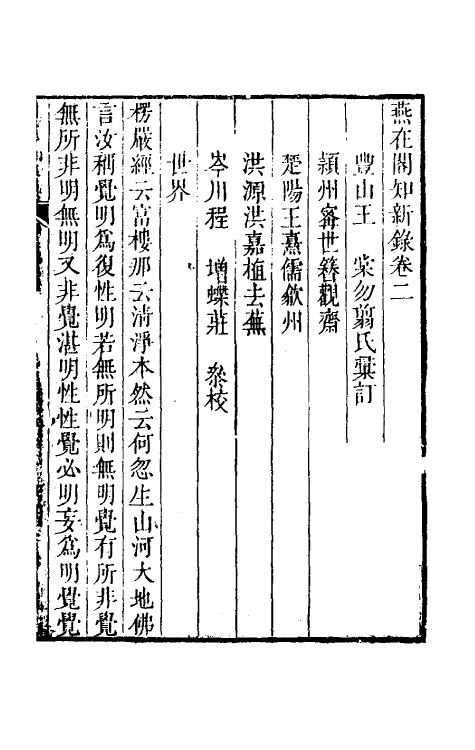 燕在閣知新錄卷二
豐山王 棠勿翦氏彙訂
潁州甯世簪觀齋
楚陽王熹儒歙州
洪源洪嘉植去蕪
岑川程 增蝶莊 叅校
世界
楞嚴經云富樓那云清淨本然云何忽生山河大地佛
言汝稱覺明爲復性明若無所明則無明覺有所非覺
無所非明無明又非覺湛明性性覺必明妄爲明覺覺